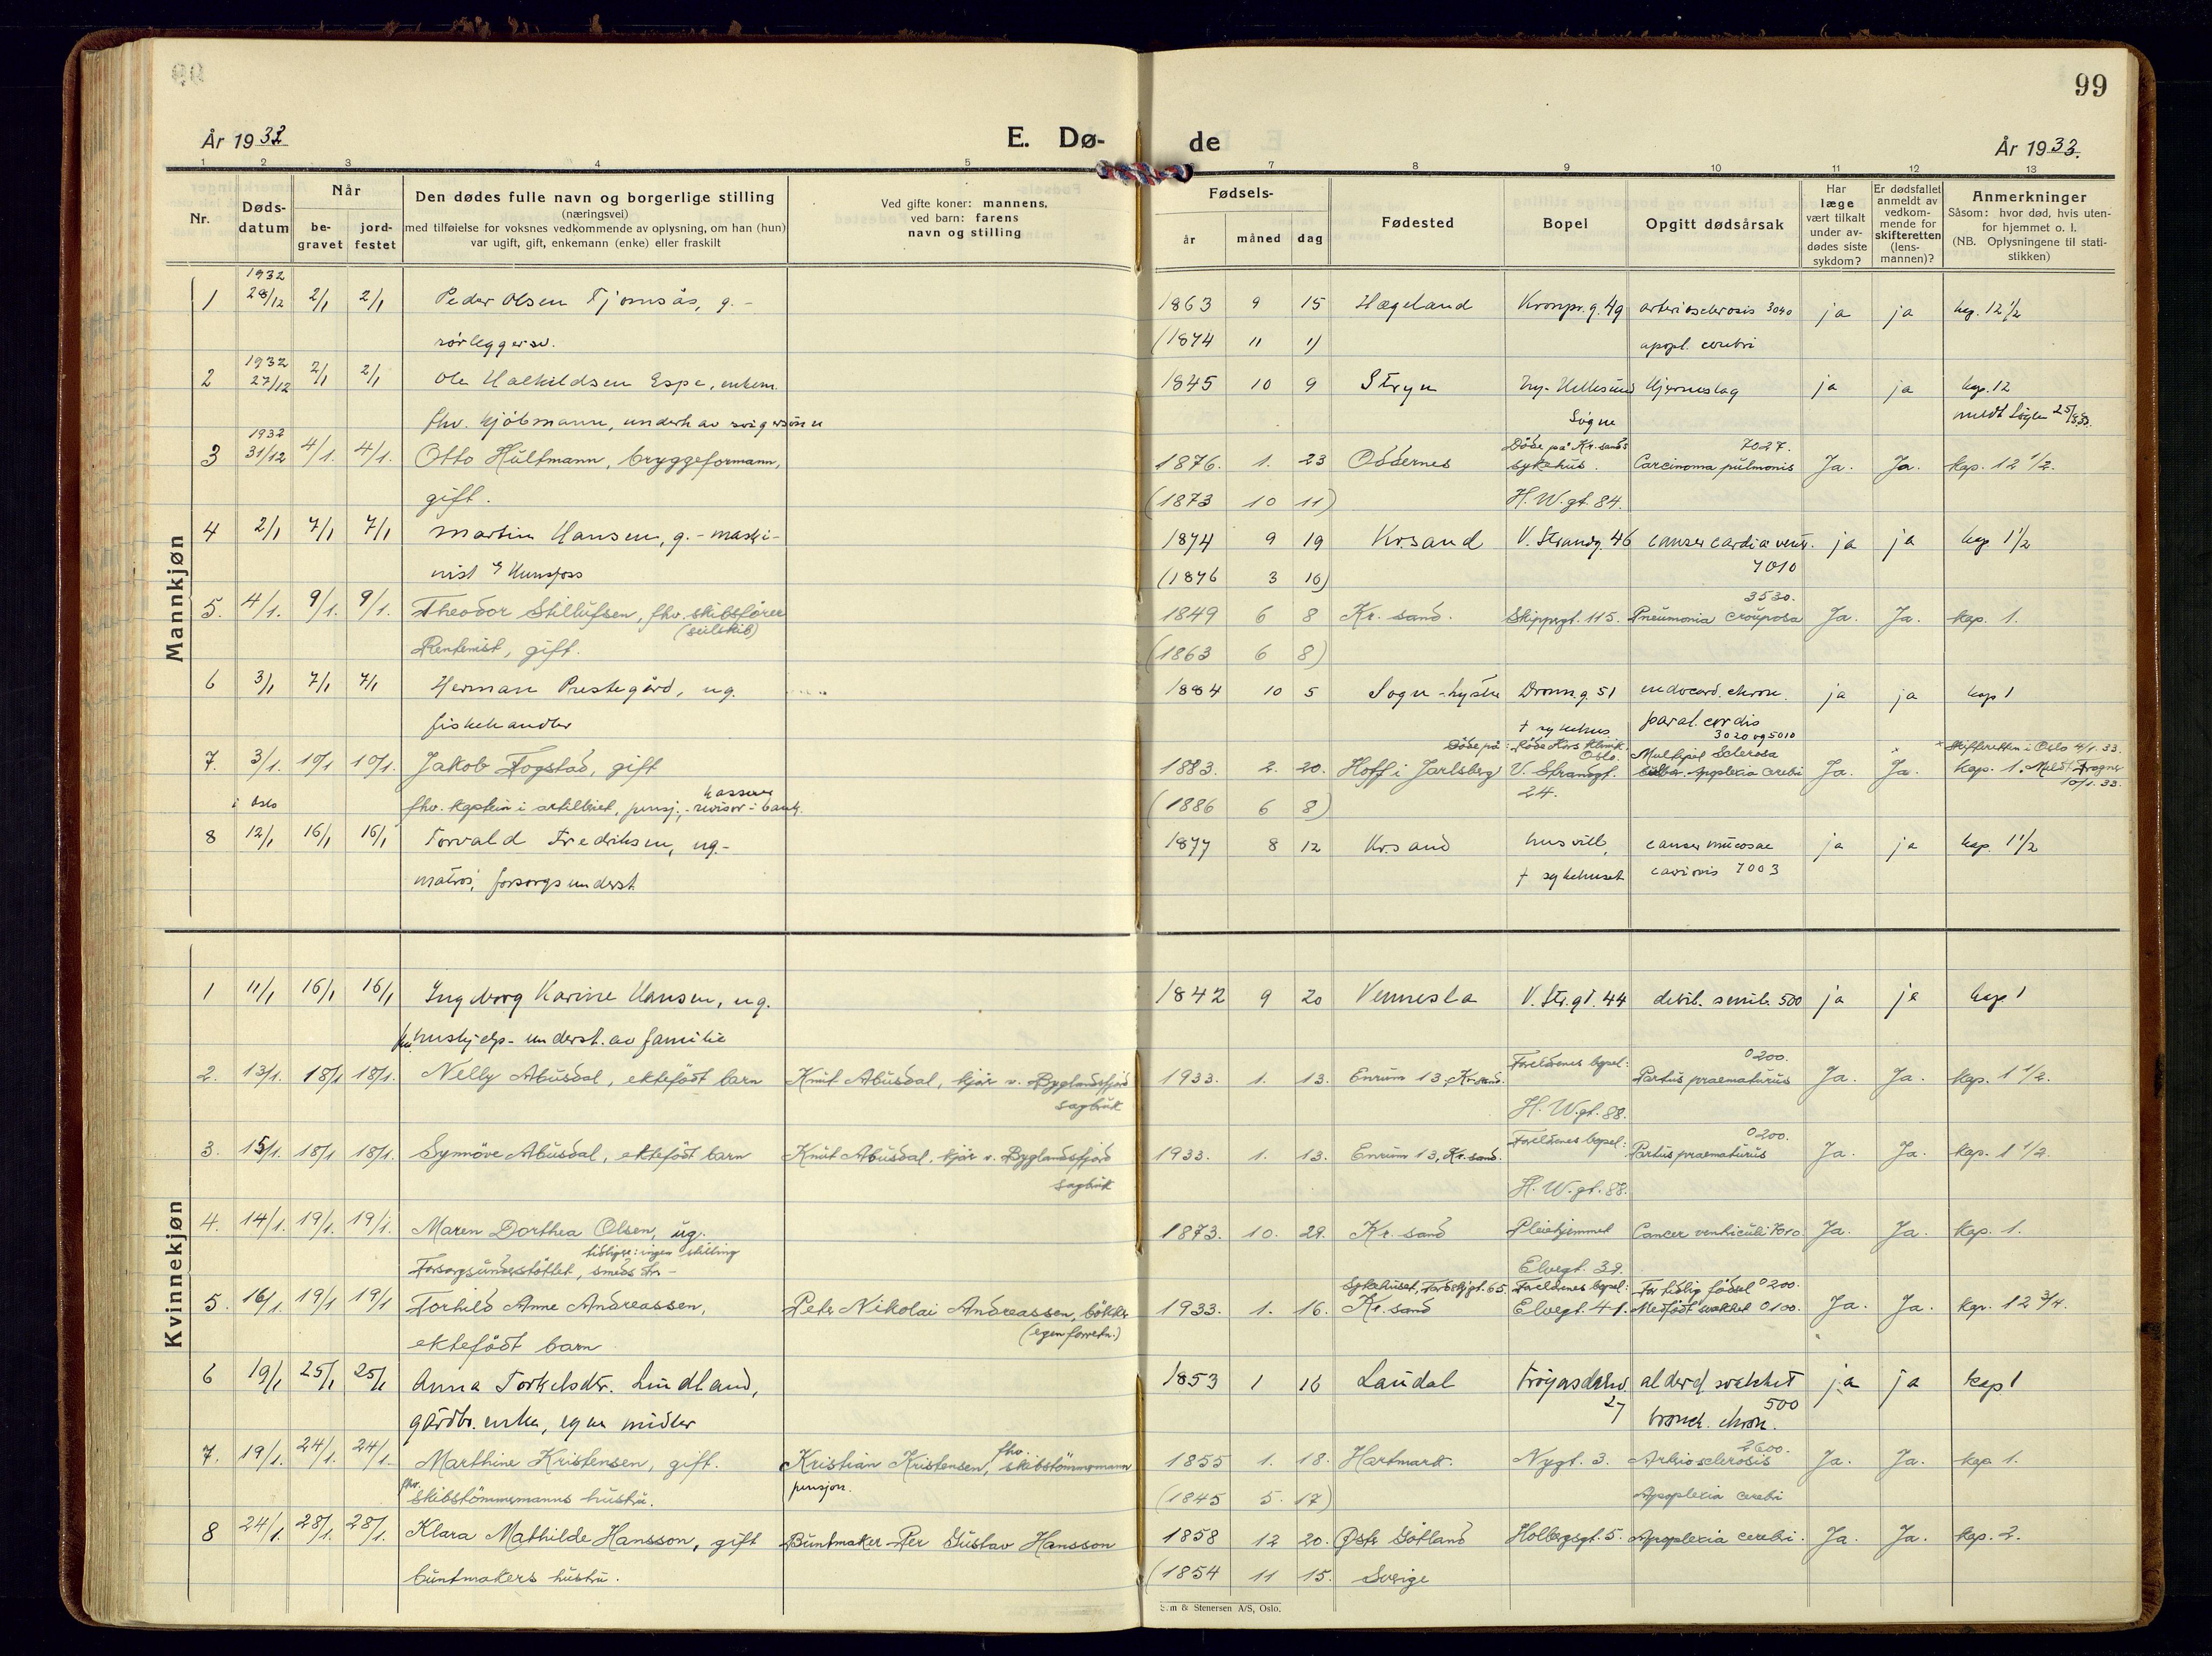 99
År 1933
E. Dø-
de
År 1933.
1 2 3 4 5 7 8 9 10 11 12 13
Nr.
Døds-
datum
Når
be-
gravet
jord-
festet
Den dødes fulle navn og borgerlige stilling
(næringsvei)
med tilføielse for voksnes vedkommende av oplysning, om han (hun)
var ugift, gift, enkemann (enke) eller fraskilt
Ved gifte koner: mannens,
ved barn: farens
navn og stilling
Fødsels-
år måned dag
Fødested
Bopel
Opgitt dødsårsak
Har
læge
vært tilkalt
under av-
dødes siste
sykdom?
Er dødsfallet
anmeldt av
vedkom-
mende for
skifteretten
(lens-
mannen)?
Anmerkninger
Såsom: hvor død, hvis uten-
for hjemmet o. l.
(NB. Oplysningene til stati-
stikken)
Mannkjøn
1932
1 28/12 2/1 2/1 Peder Olsen Tjomsås, g. - 1863 9 15 Hægeland Kronpr.g. 49 arteriosclerosis 3040 ja ja kap. 12 1/2
rörleggersv. (1874 11 1) apopl. cerebri
1932
2 27/12 2/1 2/1 Ole Halkildsen Espe, enkem. 1845 10 9 Stryn Ny-Hellesund Hjerneslag ja ja kap. 12
fhv. kjöbmann, underh av svigersönn Søgne meldt Søgne 25/1 33.
1932
3 31/12 4/1. 4/1. Otto Hultmann, bryggeformann, 1876. 1. 23 Oddernes Döde på Kr.sands sykehus. 7027. Carcinoma pulmonis Ja. Ja. kap. 12 1/2.
gift. (1873 10 11) H. W. gt. 84.
4 2/1 7/1 7/1 Martin Hansen, g. - maski- 1874 9 19 Kr.sand V. Strandg. 46 cancer cardia ventr. ja ja kap 1 1/2
nist Hunsfoss (1876 3 16) 7010
5. 4/1. 9/1. 9/1. Theodor Stillufsen, fhv. skibsförer 1849 6 8 Kr. sand. Skippergt. 115. 3530. Pneumonia crouposa Ja. Ja. kap. 1.
(seilskib)
Rentenist, gift. (1863 6 8)
6 3/1 7/1 7/1 Herman Prestegård, ug. 1884 10 5 Sogn - Dronn.g. 51 endocard. chron. ja ja kap 1
fiskehandler + sykehus paral. cordis
3020 og 5010
7. 3/1. 10/1 10/1. Jakob Fogstad, gift 1883. 2. 20. Hoff i Jarlsberg Döde på: Röde Kors Klinik, Oslo. V. Strandgt. Multipel Sclerosa bulbær. Apoplexia cerebri Ja. Ja. Skifteretten i Oslo 4/1. 33. kap. 1. Meldt Frogner
i Oslo fhv. kaptein i artilleriet, pensj., kasserer - revisor i bank. (1886 6 8) 24. 10/1. 33.
8 12/1 16/1 16/1 Torvald Fredriksen, ug. - 1877 8 12 Kr.sand husvill, cancer mucosae ja ja kap. 1 1/2
matros, forsorgsunderst + sykehuset 7003
Kvinnekjøn
1 11/1 16/1 16/1 Ingeborg Karine Hansen, ug. 1842 9 20 Vennesla V. Str.gt. 44 debil. senil. 500 ja ja kap. 1
fhv. hushjelp - underst. av familie
2. 13/1. 18/1 18/1. Nelly Abusdal, ektefödt barn Knut Abusdal, kjör v. Byglandsfjord 1933. 1. 13. Enrum 13, Kr.sand. Foreldrenes bopel: 0200. Partus praematurus Ja. Ja. kap. 1 1/2.
sagbruk H. W. gt. 88.
3. 15/1. 18/1 18/1. Synnöve Abusdal, ektefödt barn Knut Abusdal, kjör v. Byglandsfjord 1933. 1. 13. Enrum 13, Kr.sand. Foreldrenes bopel: 0200. Partus praematurus Ja. Ja. kap. 1 1/2.
sagbruk H. W. gt. 88.
4. 14/1. 19/1. 19/1. Maren Dorthea Olsen, ug. 1873. 10. 29. Kr. sand Pleiehjemmet Cancer ventriculi 7010. Ja. Ja. kap. 1.
tidligere: ingen stilling
Forsorgsunderstöttet, smeds dtr - Elvegt. 39.
5. 16/1. 19/1 19/1 Torhild Anne Andreassen, Peter Nikolai Andreassen, bökker 1933. 1. 16. Sykehuset, Tordenskj.gt. 65. Kr. sand Foreldrenes bopel: Elvegt. 41. For tidlig födsel 0200. Medfödt svakhet 0100. Ja. Ja. kap. 12 3/4.
ektefödt barn (egen forretn.)
6 19/1 25/1 25/1 Anna Torkelsdtr. Lindland, 1853 1 16 Laudal Fröyasdalsv. 27 alderd. svakhet 500 ja ja kap 1
gårdbr. enke, egne midler bronch. chron.
7. 19/1. 24/1. 24/1. Marthine Kristensen, gift. Kristian Kristensen, fhv. skibstömmermann 1855 1. 18. Hartmark. Nygt. 3. 2600. Arteriosclerosis Ja. Ja. kap 1.
fhv. skibstömmermanns hustru. pensjon. (1845 5. 17) Apoplexia cerebri
8 24/1. 28/1. 28/1. Klara Mathilde Hansson, gift Buntmaker Per Gustav Hansson 1858 12 20. Østr Götland Holbergsgt. 5. Apoplexia cerebri. Ja. Ja. kap. 2.
buntmakers hustru. (1854 11 15. Sverige
S.m & Stenersen A/S, Oslo.